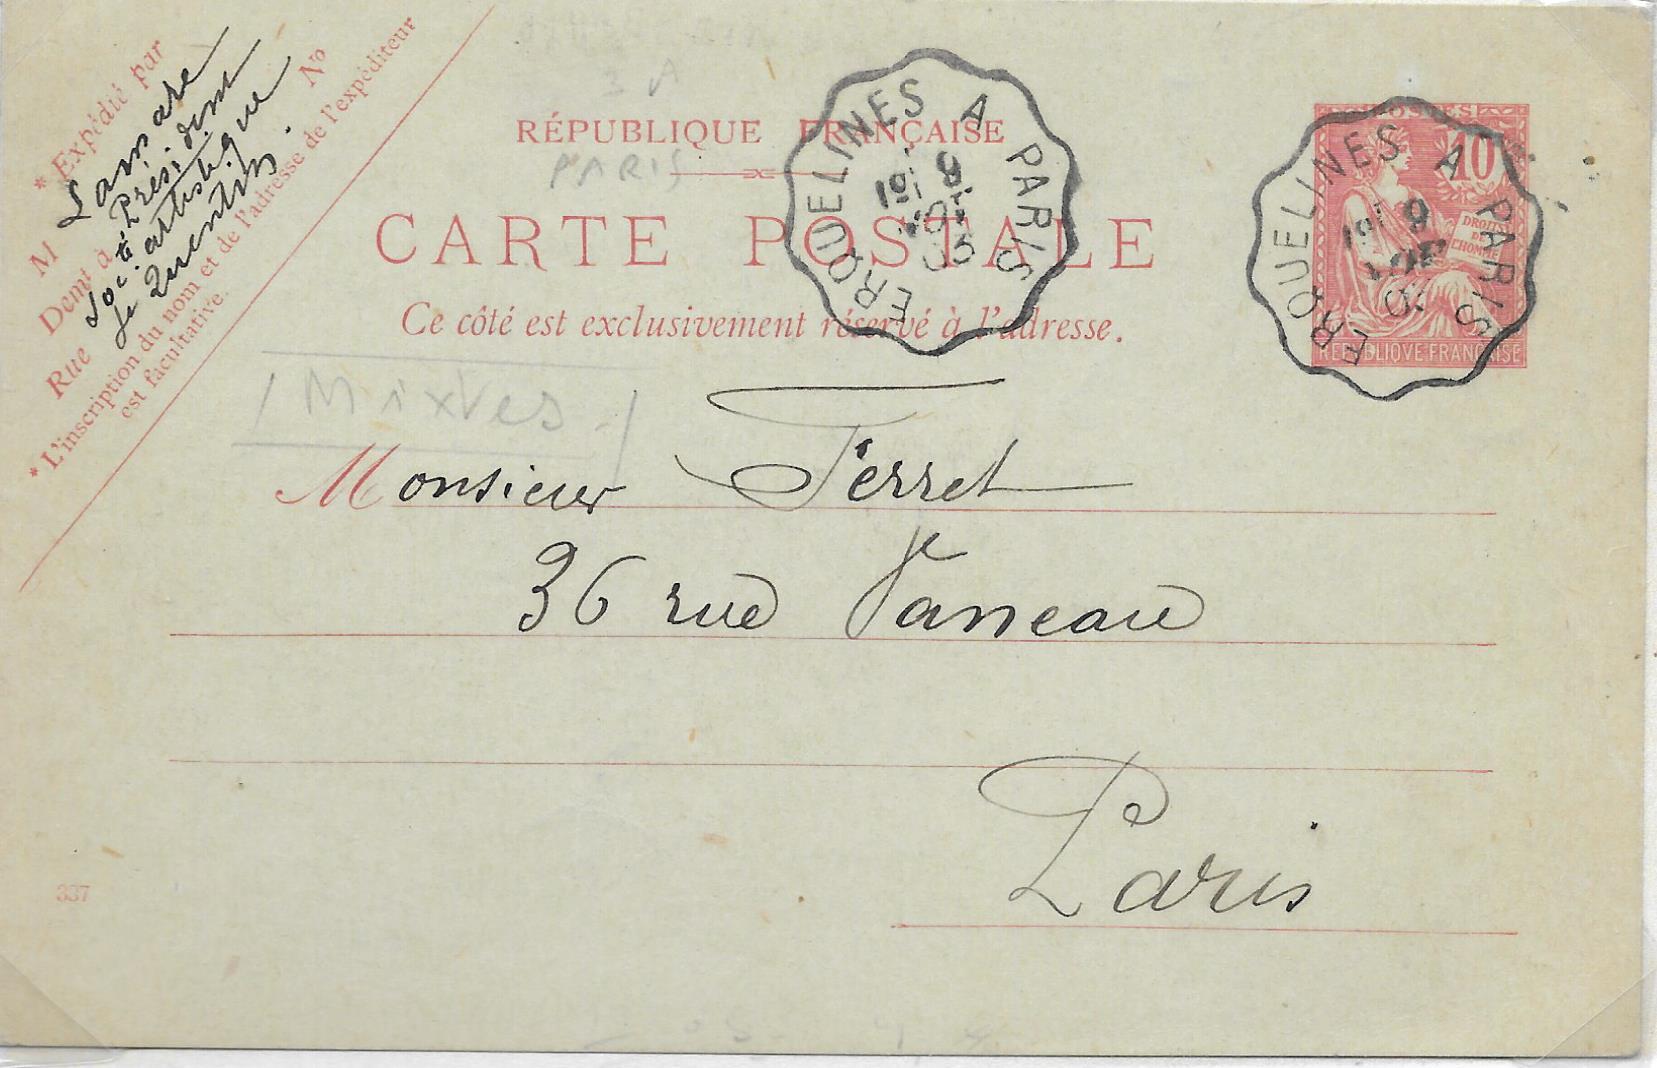 * Expédié par
M Lansare
Demt à Présidént
Rue Socté artistique N°
St Quentin.
* L'inscription du nom et de l'adresse de l'expéditeur
est facultative.
RÉPUBLIQUE FRANÇAISE
PARIS
CARTE POSTALE
Ce côté est exclusivement réservé à l'adresse.
ERQUELINES A PARIS
9
03
POSTES
10
DROITS
DE
L'HOMME
REPUBLIQUE FRANÇAISE
ERQUELINES A PARIS
9
Mixtes
Monsieur Ferret
36 rue Vaneau
Paris
337